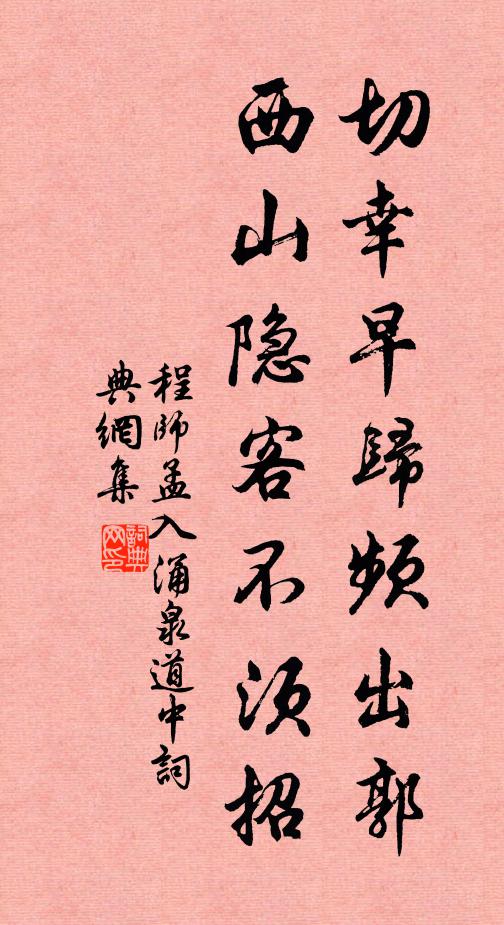 切幸早歸頻出郭
西山隐客不须招
程師孟入涌泉道中詞
典網集
詞典网印